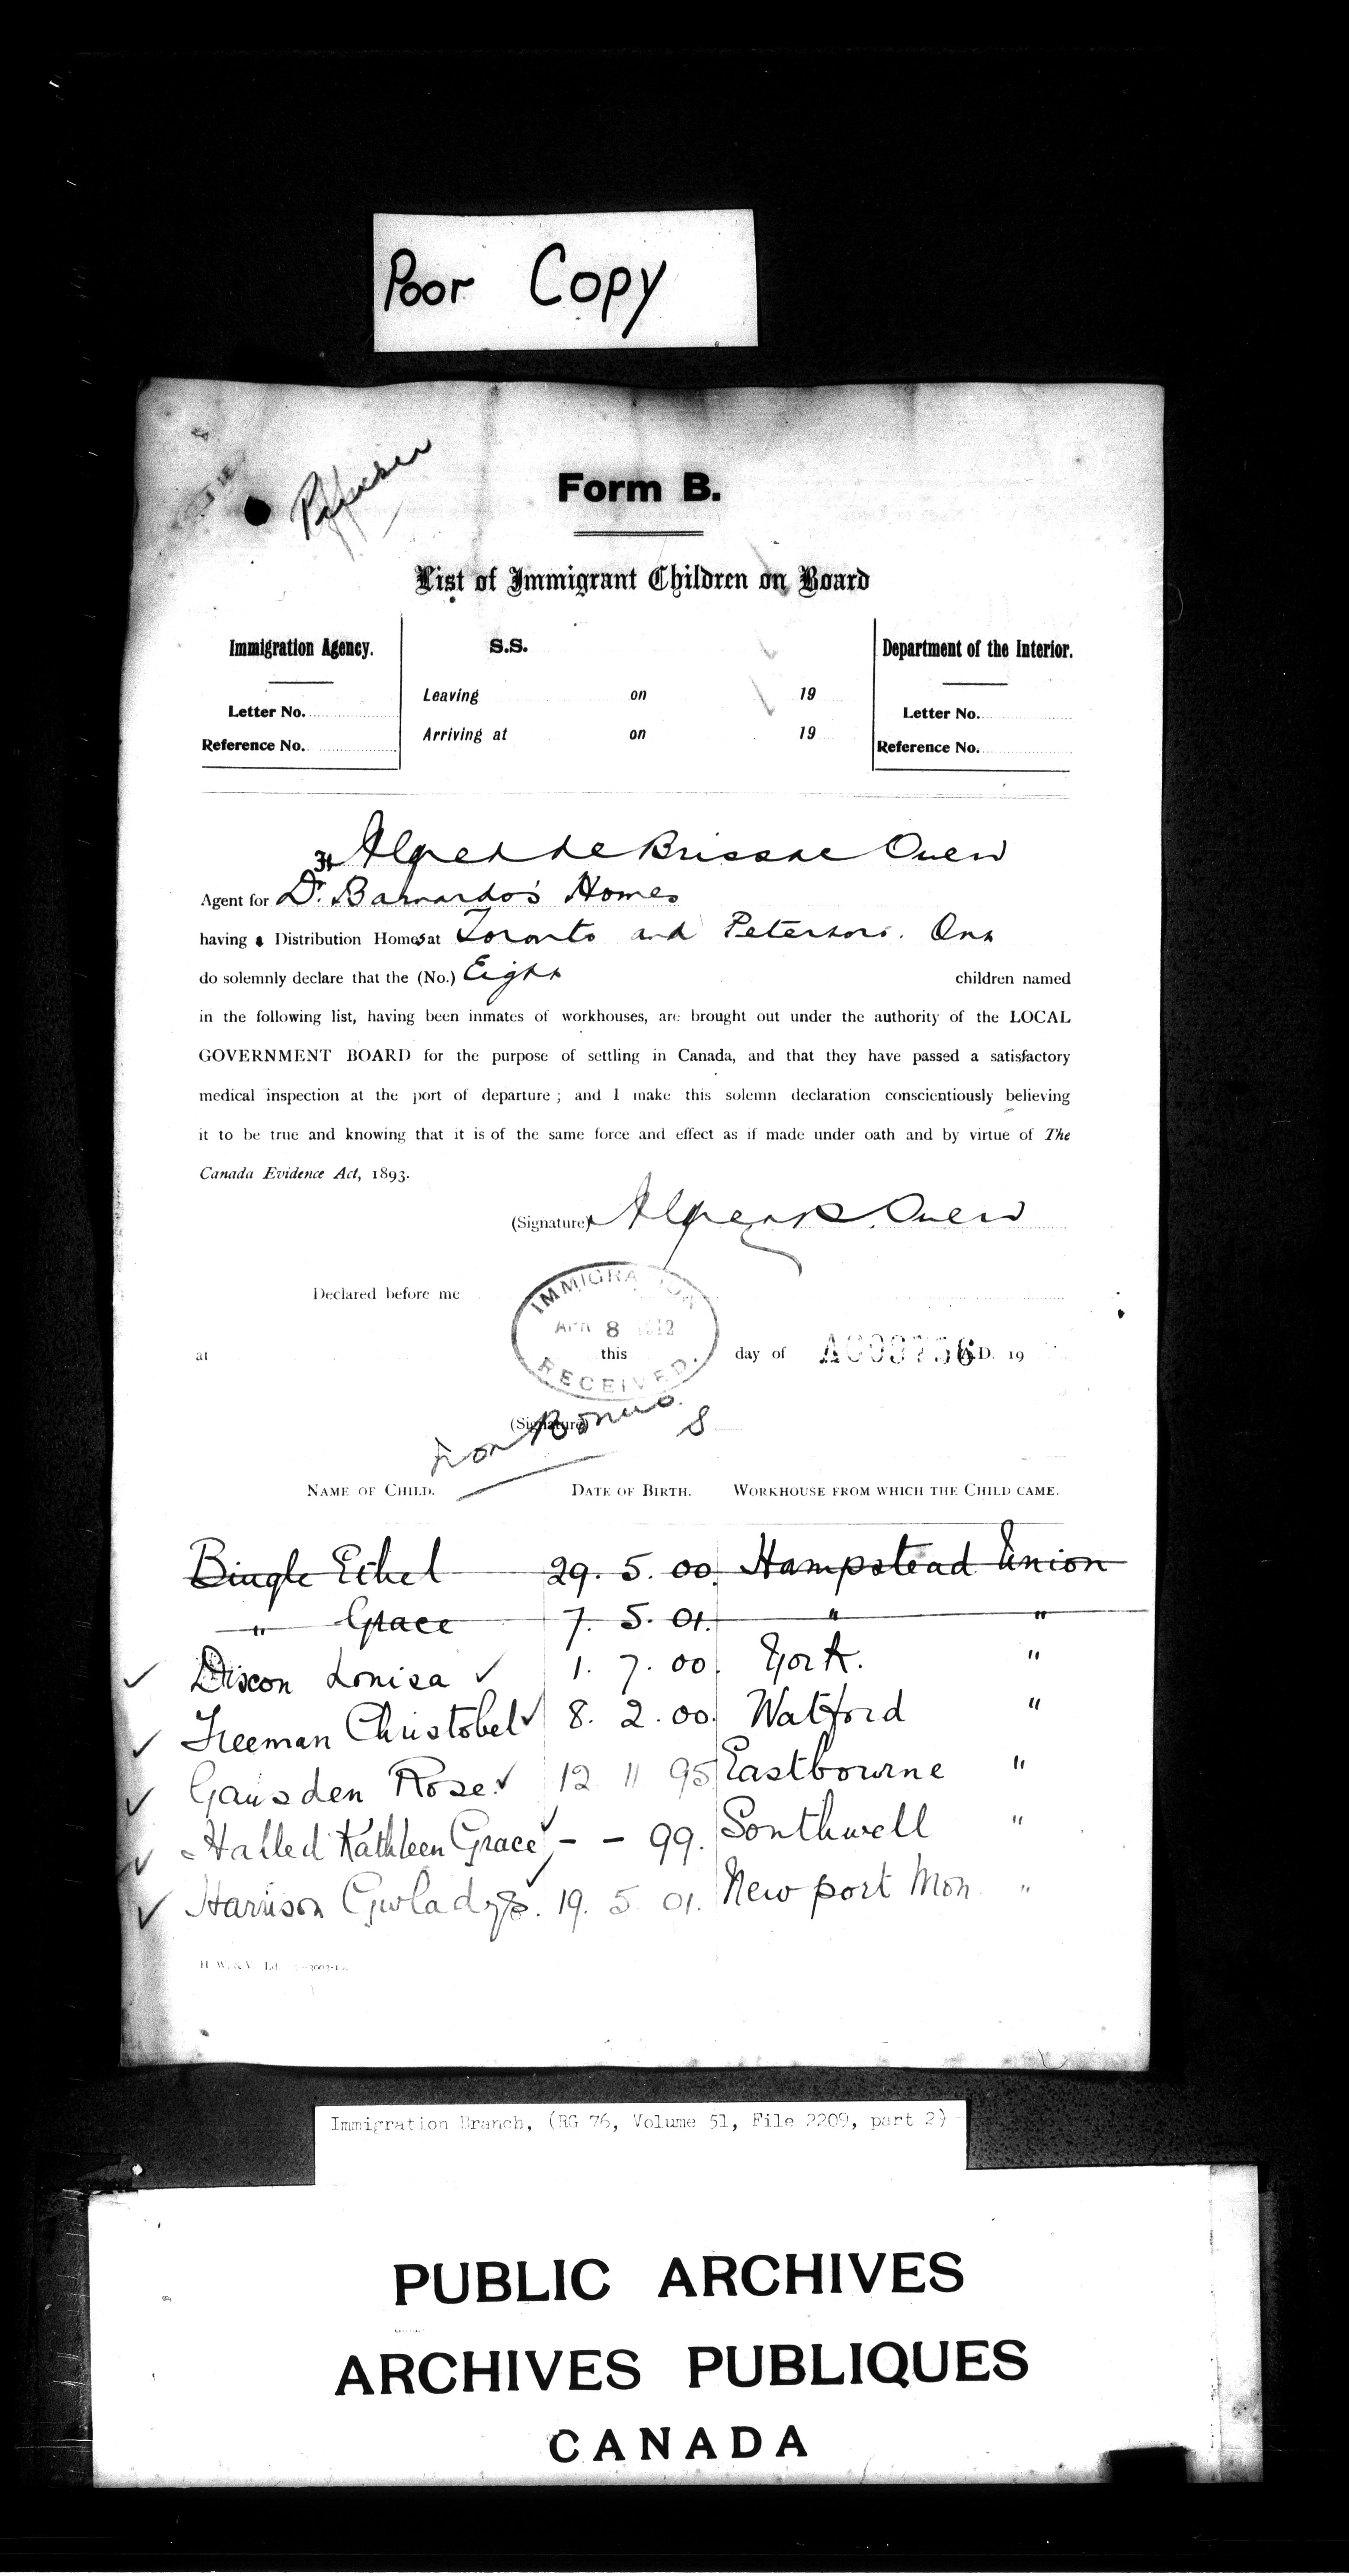 Poor Copy
Form B.
List of Immigrant Children on Board
Immigration Agency.
Letter No.
Reference No.
S.S.
Leaving on 19
Arriving at on 19
Department of the Interior.
Letter No.
Reference No.
I, Alfred de Brissac Owen
Agent for Dr. Barnardo's Homes
having a Distribution Homes at Toronto and Peterboro. Ont
do solemnly declare that the (No.) Eight children named
in the following list, having been inmates of workhouses, are brought out under the authority of the LOCAL
GOVERNMENT BOARD for the purpose of settling in Canada, and that they have passed a satisfactory
medical inspection at the port of departure; and I make this solemn declaration conscientiously believing
it to be true and knowing that it is of the same force and effect as if made under oath and by virtue of The
Canada Evidence Act, 1893.
(Signature) Alfred B. Owen
Declared before me
IMMIGRATION
APR 8 1912
RECEIVED.
at this day of A.D. 19
(Signature)
Non Bonus 8
NAME OF CHILD. DATE OF BIRTH. WORKHOUSE FROM WHICH THE CHILD CAME.
Bingle Ethel 29. 5. 00. Hampstead Union
" Grace 7. 5. 01. " "
✓ Dixon Louisa ✓ 1. 7. 00. York. "
✓ Freeman Christobel ✓ 8. 2. 00. Watford "
✓ Gausden Rose. ✓ 12 11 95 Eastbourne "
✓ Halled Kathleen Grace ✓ - - 99. Southwell "
✓ Harrison Gwladys. ✓ 19. 5 01. Newport Mon "
Immigration Branch, (RG 76, Volume 51, File 2209, part 2)
PUBLIC ARCHIVES
ARCHIVES PUBLIQUES
CANADA